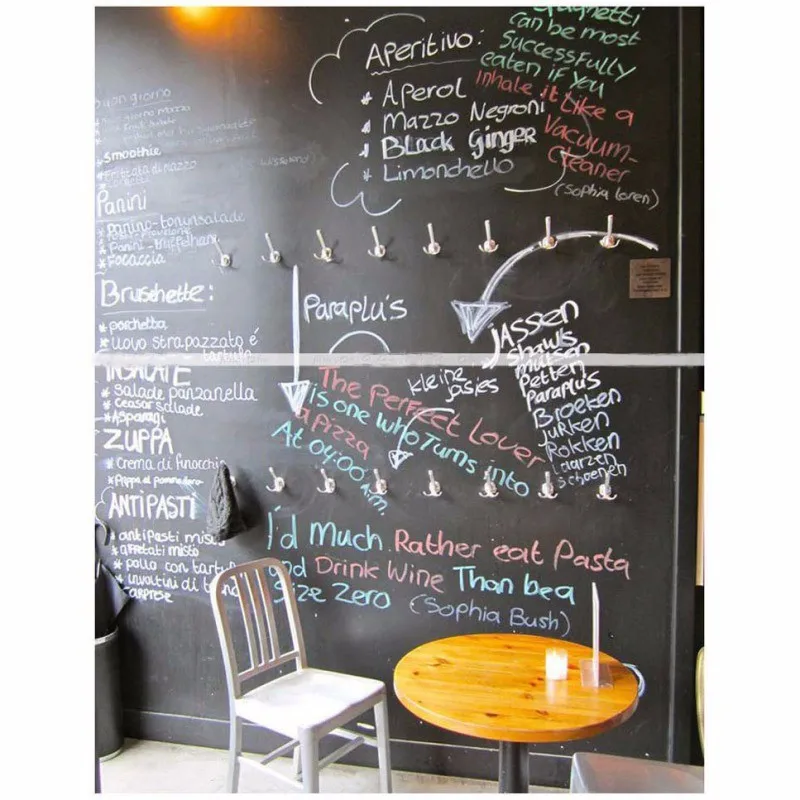 Buon giorno
Smoothie
Frittata di mazzo
Panini
* panino-tonijnsalade
* Focaccia
Bruschette:
* porchetta
* uovo strapazzato é
tartufo
INSALATE
* Salade panzanella
* Ceasar salade
* Asparagi
ZUPPA
* Crema di finocchio
* Pappa al pomodoro
ANTIPASTI
* antipasti misto
* affettati misto
* pollo con tartufo
* involtini di
Caprese
Aperitivo:
* Aperol
* Mazzo Negroni
* Black Ginger
* Limonchello
Spaghetti
can be most
Successfully
eaten if you
Inhale it Like a
Vacuum-
Cleaner
(Sophia Loren)
Paraplu's
kleine
jasjes
JASSEN
Shawls
mutsen
Petten
Paraplu's
Broeken
Jurken
Rokken
Laarzen
Schoenen
The Perfect Lover
is one who Turns into
a pizza
At 04:00 a.m.
I'd Much Rather eat Pasta
and Drink Wine Than be a
Size Zero (Sophia Bush)